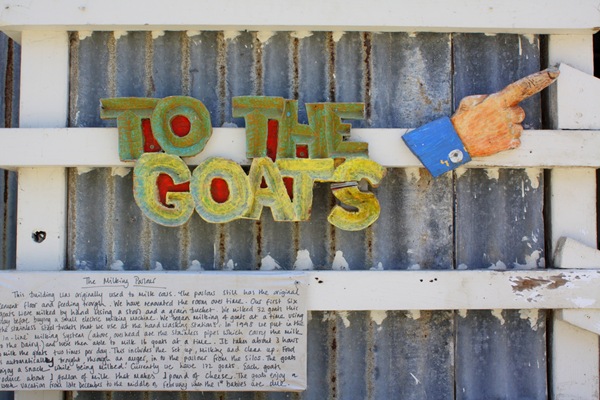 TO THE
GOATS
The Milking Parlour
This building was originally used to milk cows. The parlour still has the original
cement floor and feeding trough. We have renovated the room over time. Our first six
goats were milked by hand using a and a grain bucket. We milked 32 goats this
way before buying a small electric milking machine. We began milking 4 goats at a time using
the stainless steel bucket that we use at the hand washing station. In 1998 we put in the
"in-line" milking system (above your head are the stainless pipes which carries the milk
to the Dairy) and were then able to milk 16 goats at a time. It takes about 3 hours
to milk the goats two times per day. This includes the set up, milking and clean up. Food
is automatically brought through an auger, in to the parlour from the silos. The goats
enjoy a snack while being milked! Currently we have 172 goats. Each goat
produce about 1 gallon of milk that makes 1 pound of cheese. The goats enjoy a
vacation from late December to the middle of February when the 1st babies are due.